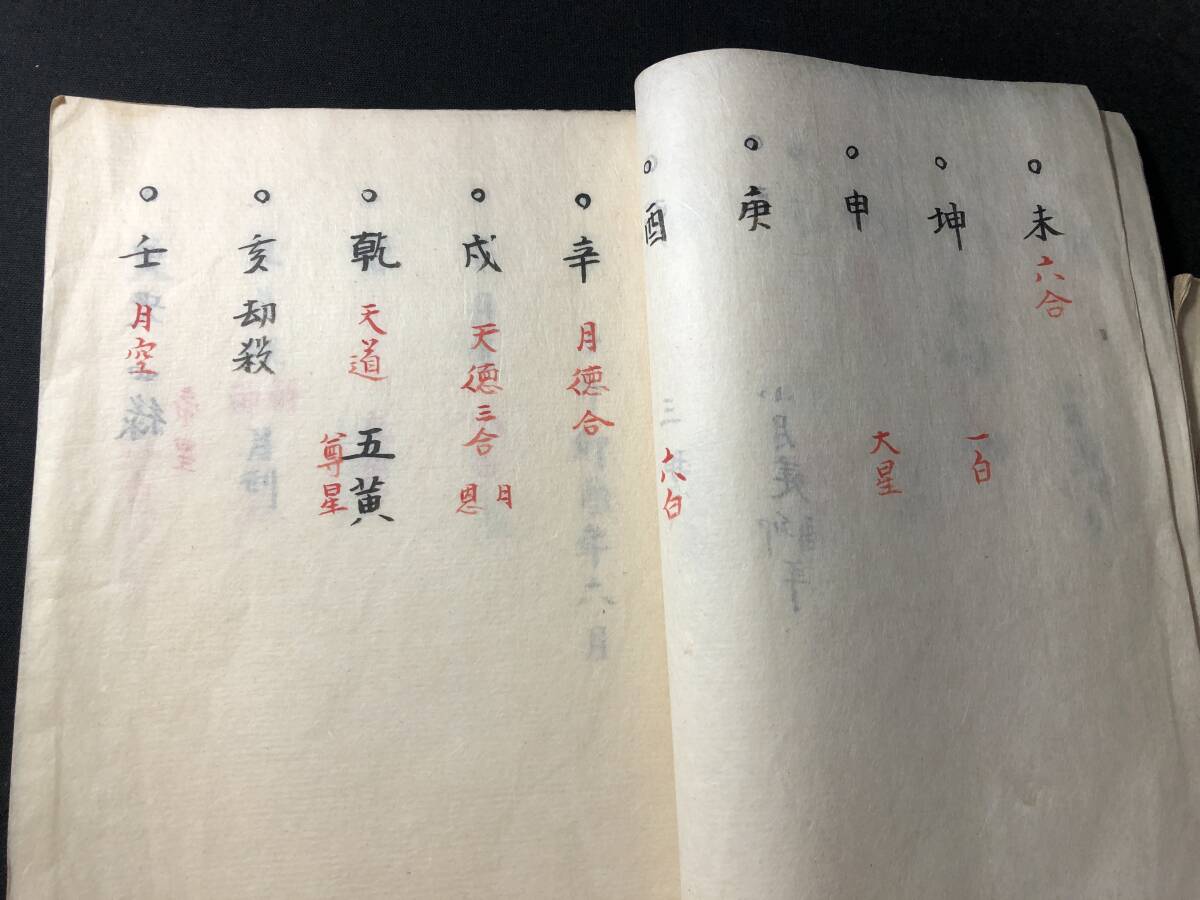 ○未 六合
○坤 一白
○申 大星
○庚
○酉 六白
○辛 月德合
○戌 天德三合 月恩
○乾 天道 五黄 尊星
○亥 劫殺
○壬 月空